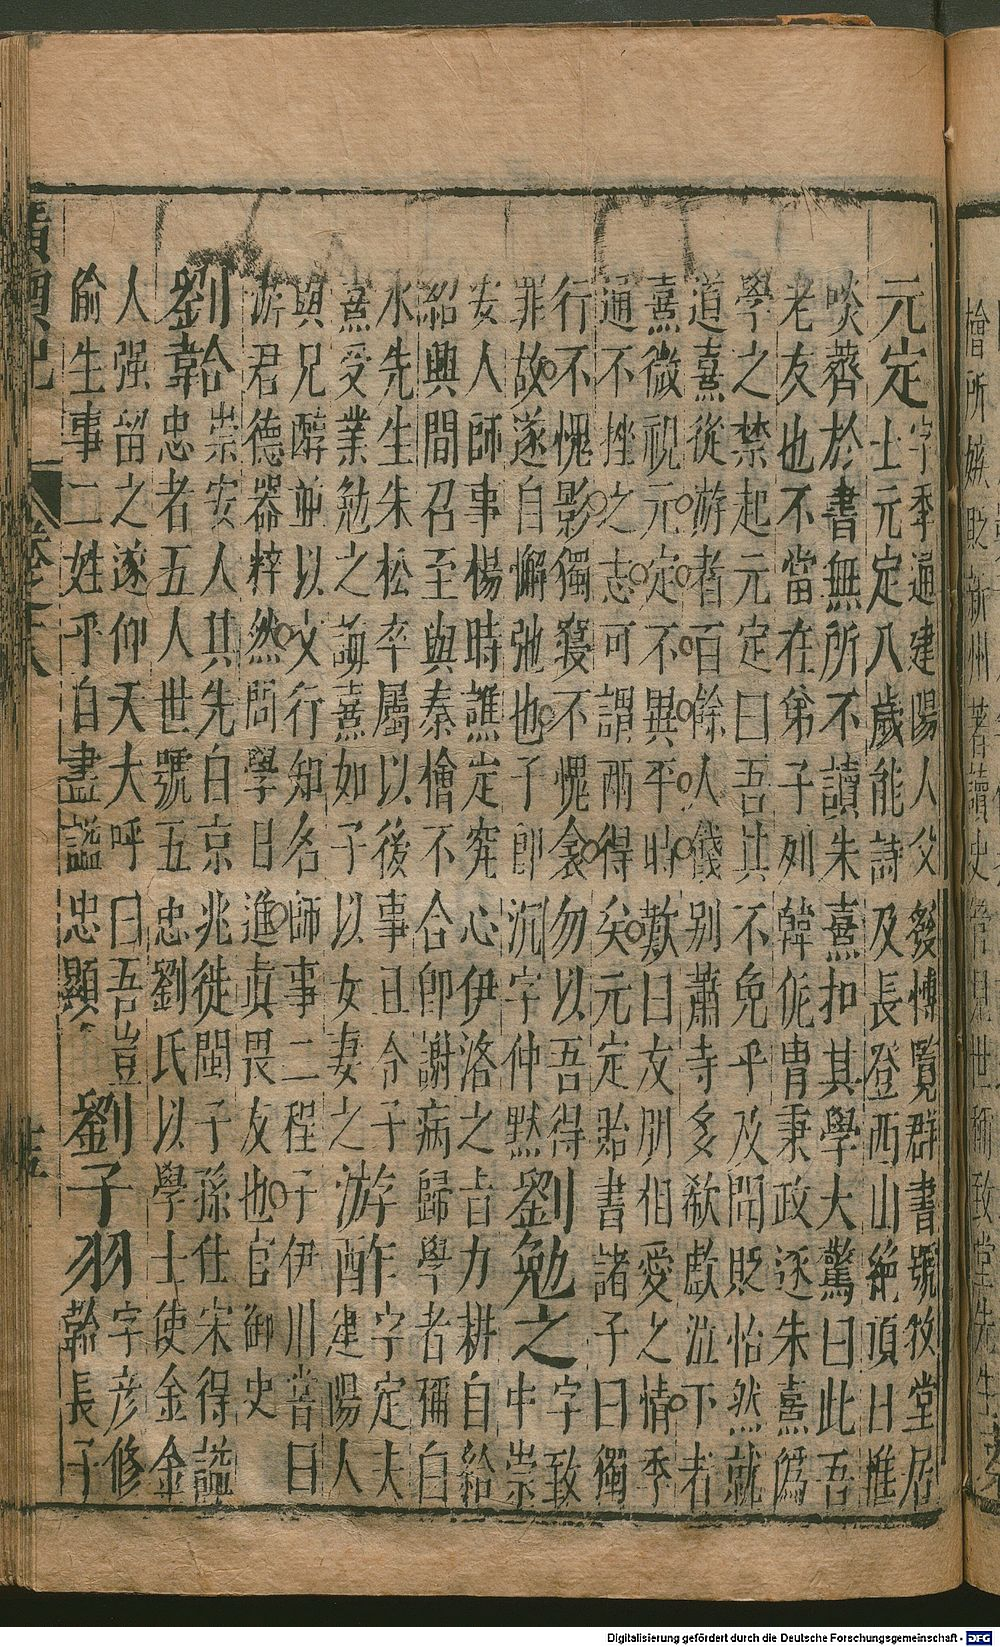 檜所嫉貶新州著讀史管見世稱致堂先生蔡
元定字季通建陽人父發博覽群書號牧堂居
士元定八歲能詩及長登西山絶頂日惟
啖薺於書無所不讀朱熹扣其學大驚曰此吾
老友也不當在第子列韓侂胄秉政逐朱熹爲
學之禁起元定曰吾其不免乎及聞貶怡然就
道熹從游者百餘人餞别蕭寺多欷歔泣下者
熹微視元定不異平時歎曰友朋相愛之情季
通不挫之志可謂兩得矣元定貽書諸子曰獨
行不愧影獨寢不愧衾勿以吾得
罪故遂自懈弛也子即沉字仲默
劉勉之字致
中崇
安人師事楊時譙定究心伊洛之旨力耕自給
紹興間召至與秦檜不合即謝病歸學者稱白
水先生朱松卒屬以後事且令子
熹受業勉之誨熹如子以女妻之
游酢字定夫
建陽人
與兄醇並以文行知名師事二程子伊川嘗曰
游君德器粹然問學日進真畏友也官御史
劉韐崇安人其先自京兆徙閩子孫仕宋得諡
忠者五人世號五忠劉氏以學士使金金
人强留之遂仰天大呼曰吾豈
偷生事二姓乎自盡諡忠顯
劉子羽字彦修
韐長子
廣輿記 卷之十八 十五
Digitalisierung gefördert durch die Deutsche Forschungsgemeinschaft - DFG